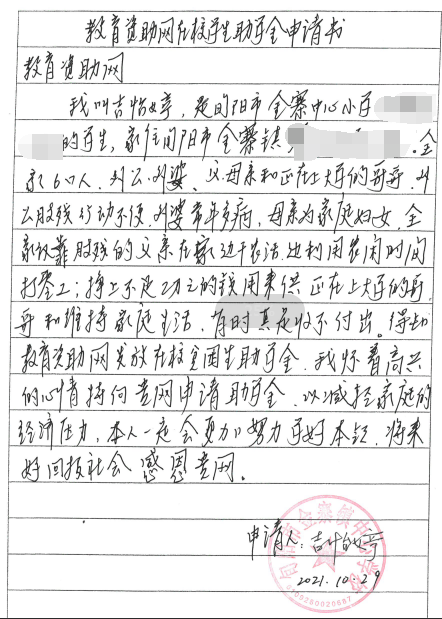 教育资助网在校学生助学金申请书
教育资助网
我叫吉怡婷,是 阳市金寨中心小学
的学生,家住 阳市金寨镇 全
家6口人,外公、外婆、父母亲和正在上大学的哥哥,外
公肢残行动不便,外婆常年多病,母亲为家庭妇女,全
家依靠肢残的父亲在家边干农活边利用农闲时间
打零工;挣上不足 的钱用来供正在上大学的哥
哥和维持家庭生活,有时真是收不付出。得知
教育资助网发放在校贫困生助学金,我怀着高兴
的心情特向贵网申请助学金,以减轻家庭的
经济压力,本人一定会更加努力学好本领,将来
好回报社会感恩贵网。
申请人:吉怡婷
2021.10.29